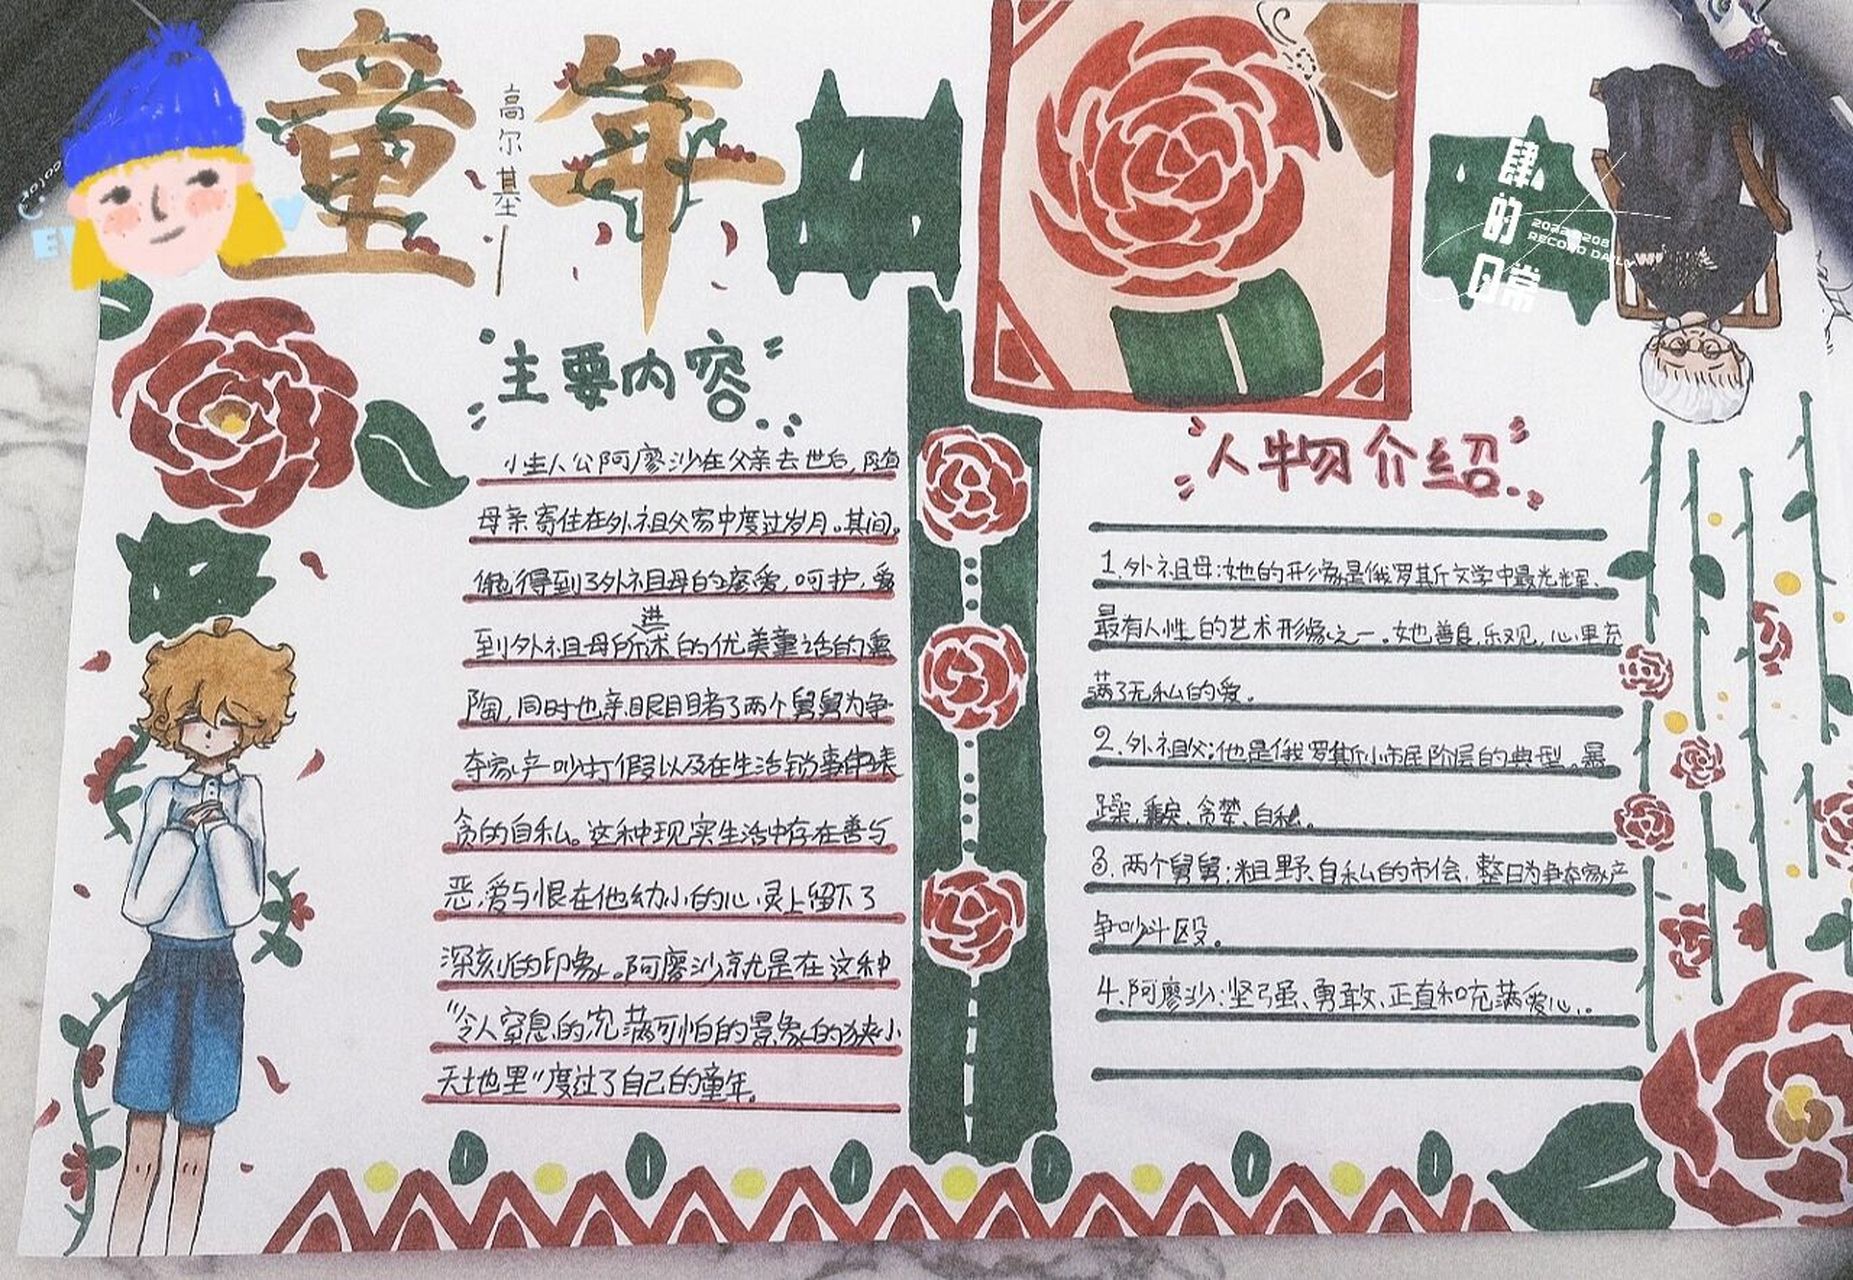 童年
高尔基
主要内容
小主人公阿廖沙在父亲去世后，随
母亲寄住在外祖父家中度过岁月。其间。
他得到了外祖母的疼爱，呵护，受
到外祖母所讲述的优美童话的熏
陶，同时也亲眼目睹了两个舅舅为争
夺家产吵打假以及在生活锁事中表
贪的自私。这种现实生活中存在善与
恶，爱与恨在他幼小的心灵上留下了
深刻的印象。阿廖沙就是在这种
“令人窒息的充满可怕的景象的狭小
天地里”度过了自己的童年。
人物介绍
1.外祖母：她的形象是俄罗斯文学中最光辉、
最有人性的艺术形象之一。她善良、乐观，心里充
满了无私的爱。
2.外祖父：他是俄罗斯小市民阶层的典型。暴
躁，乖戾、贪婪、自私。
3.两个舅舅：粗野、自私的市侩，整日为争夺家产
争吵斗殴。
4.阿廖沙：坚强、勇敢、正直和充满爱心。
肆的日常
RECORD DAILY